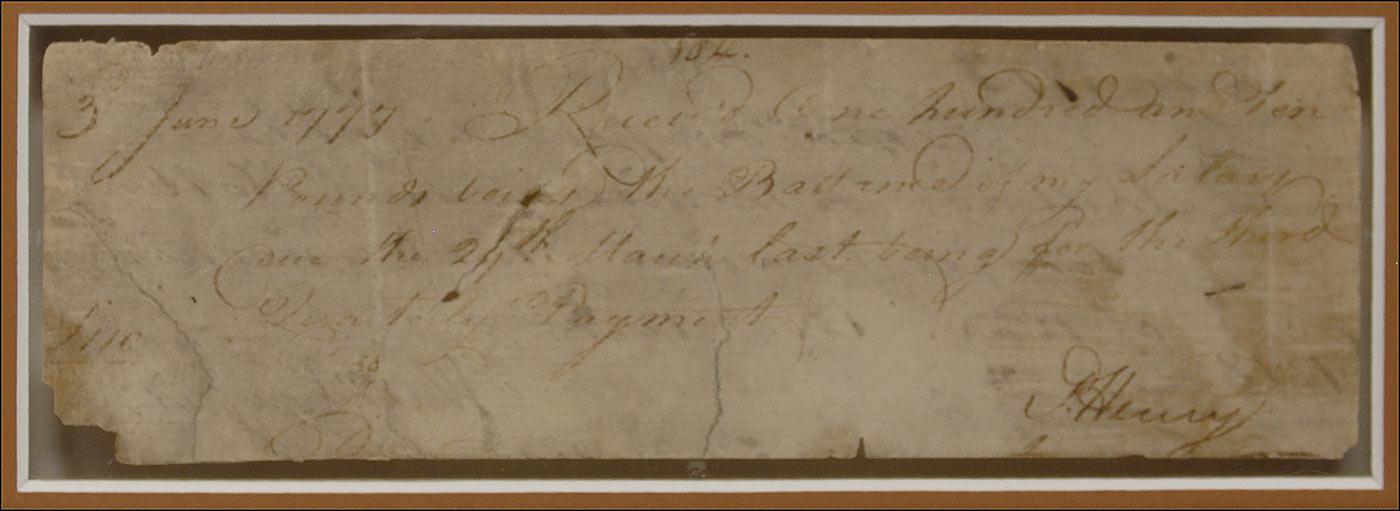 104.
3d June 1777. Receiv'd One hundred and Ten
Pounds being the Ballance of my Salary
due the 29th. March last being for the third
Quarterly Payment
£110
P. Henry